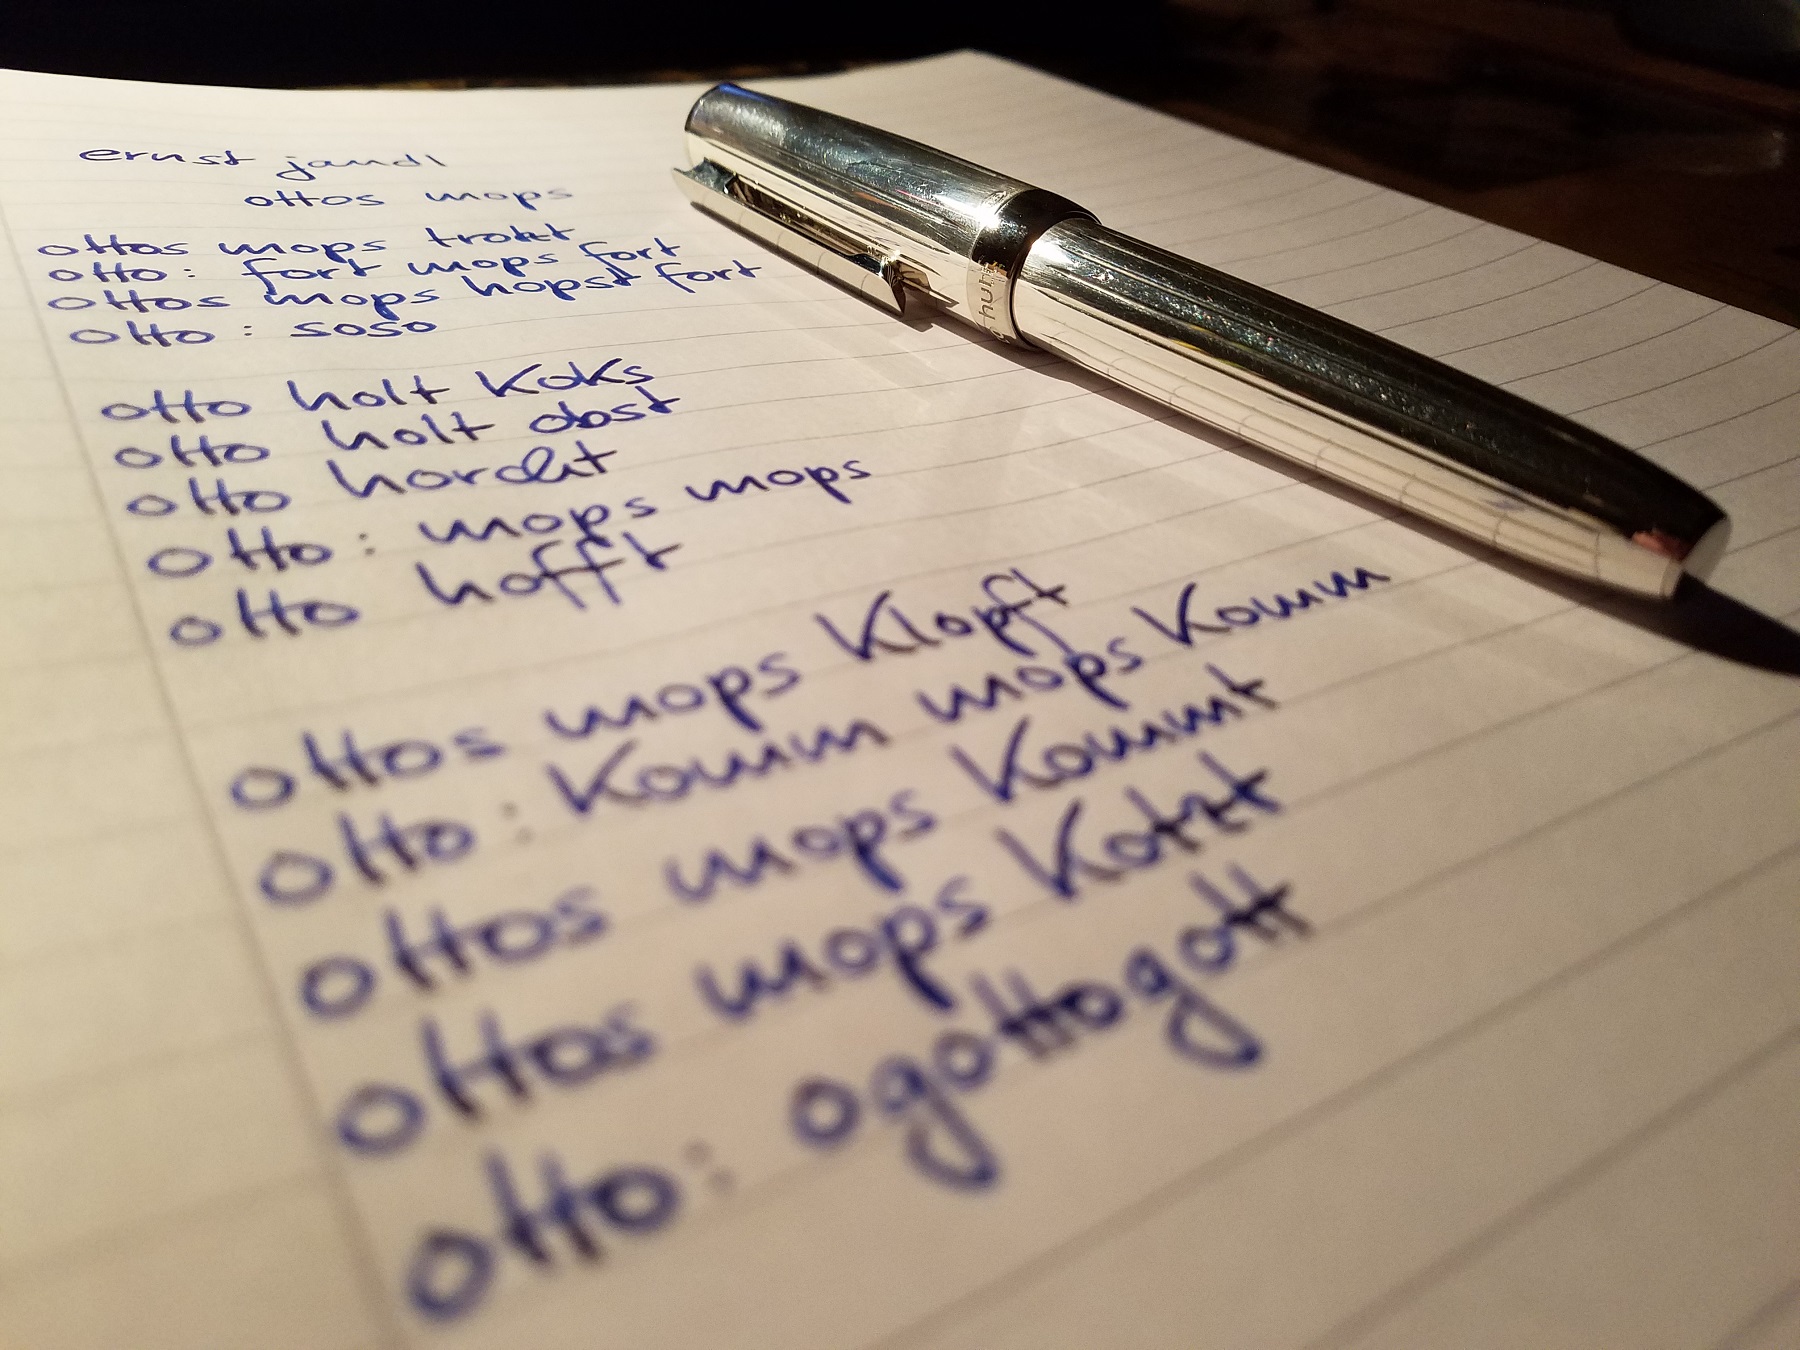 ernst jandl
ottos mops
ottos mops trotzt
otto: fort mops fort
ottos mops hopst fort
otto: soso
otto holt Koks
otto holt obst
otto horcht
otto: mops mops
otto hofft
ottos mops Klopft
otto: Komm mops Komm
ottos mops Kommt
ottos mops Kotzt
otto: ogottogott